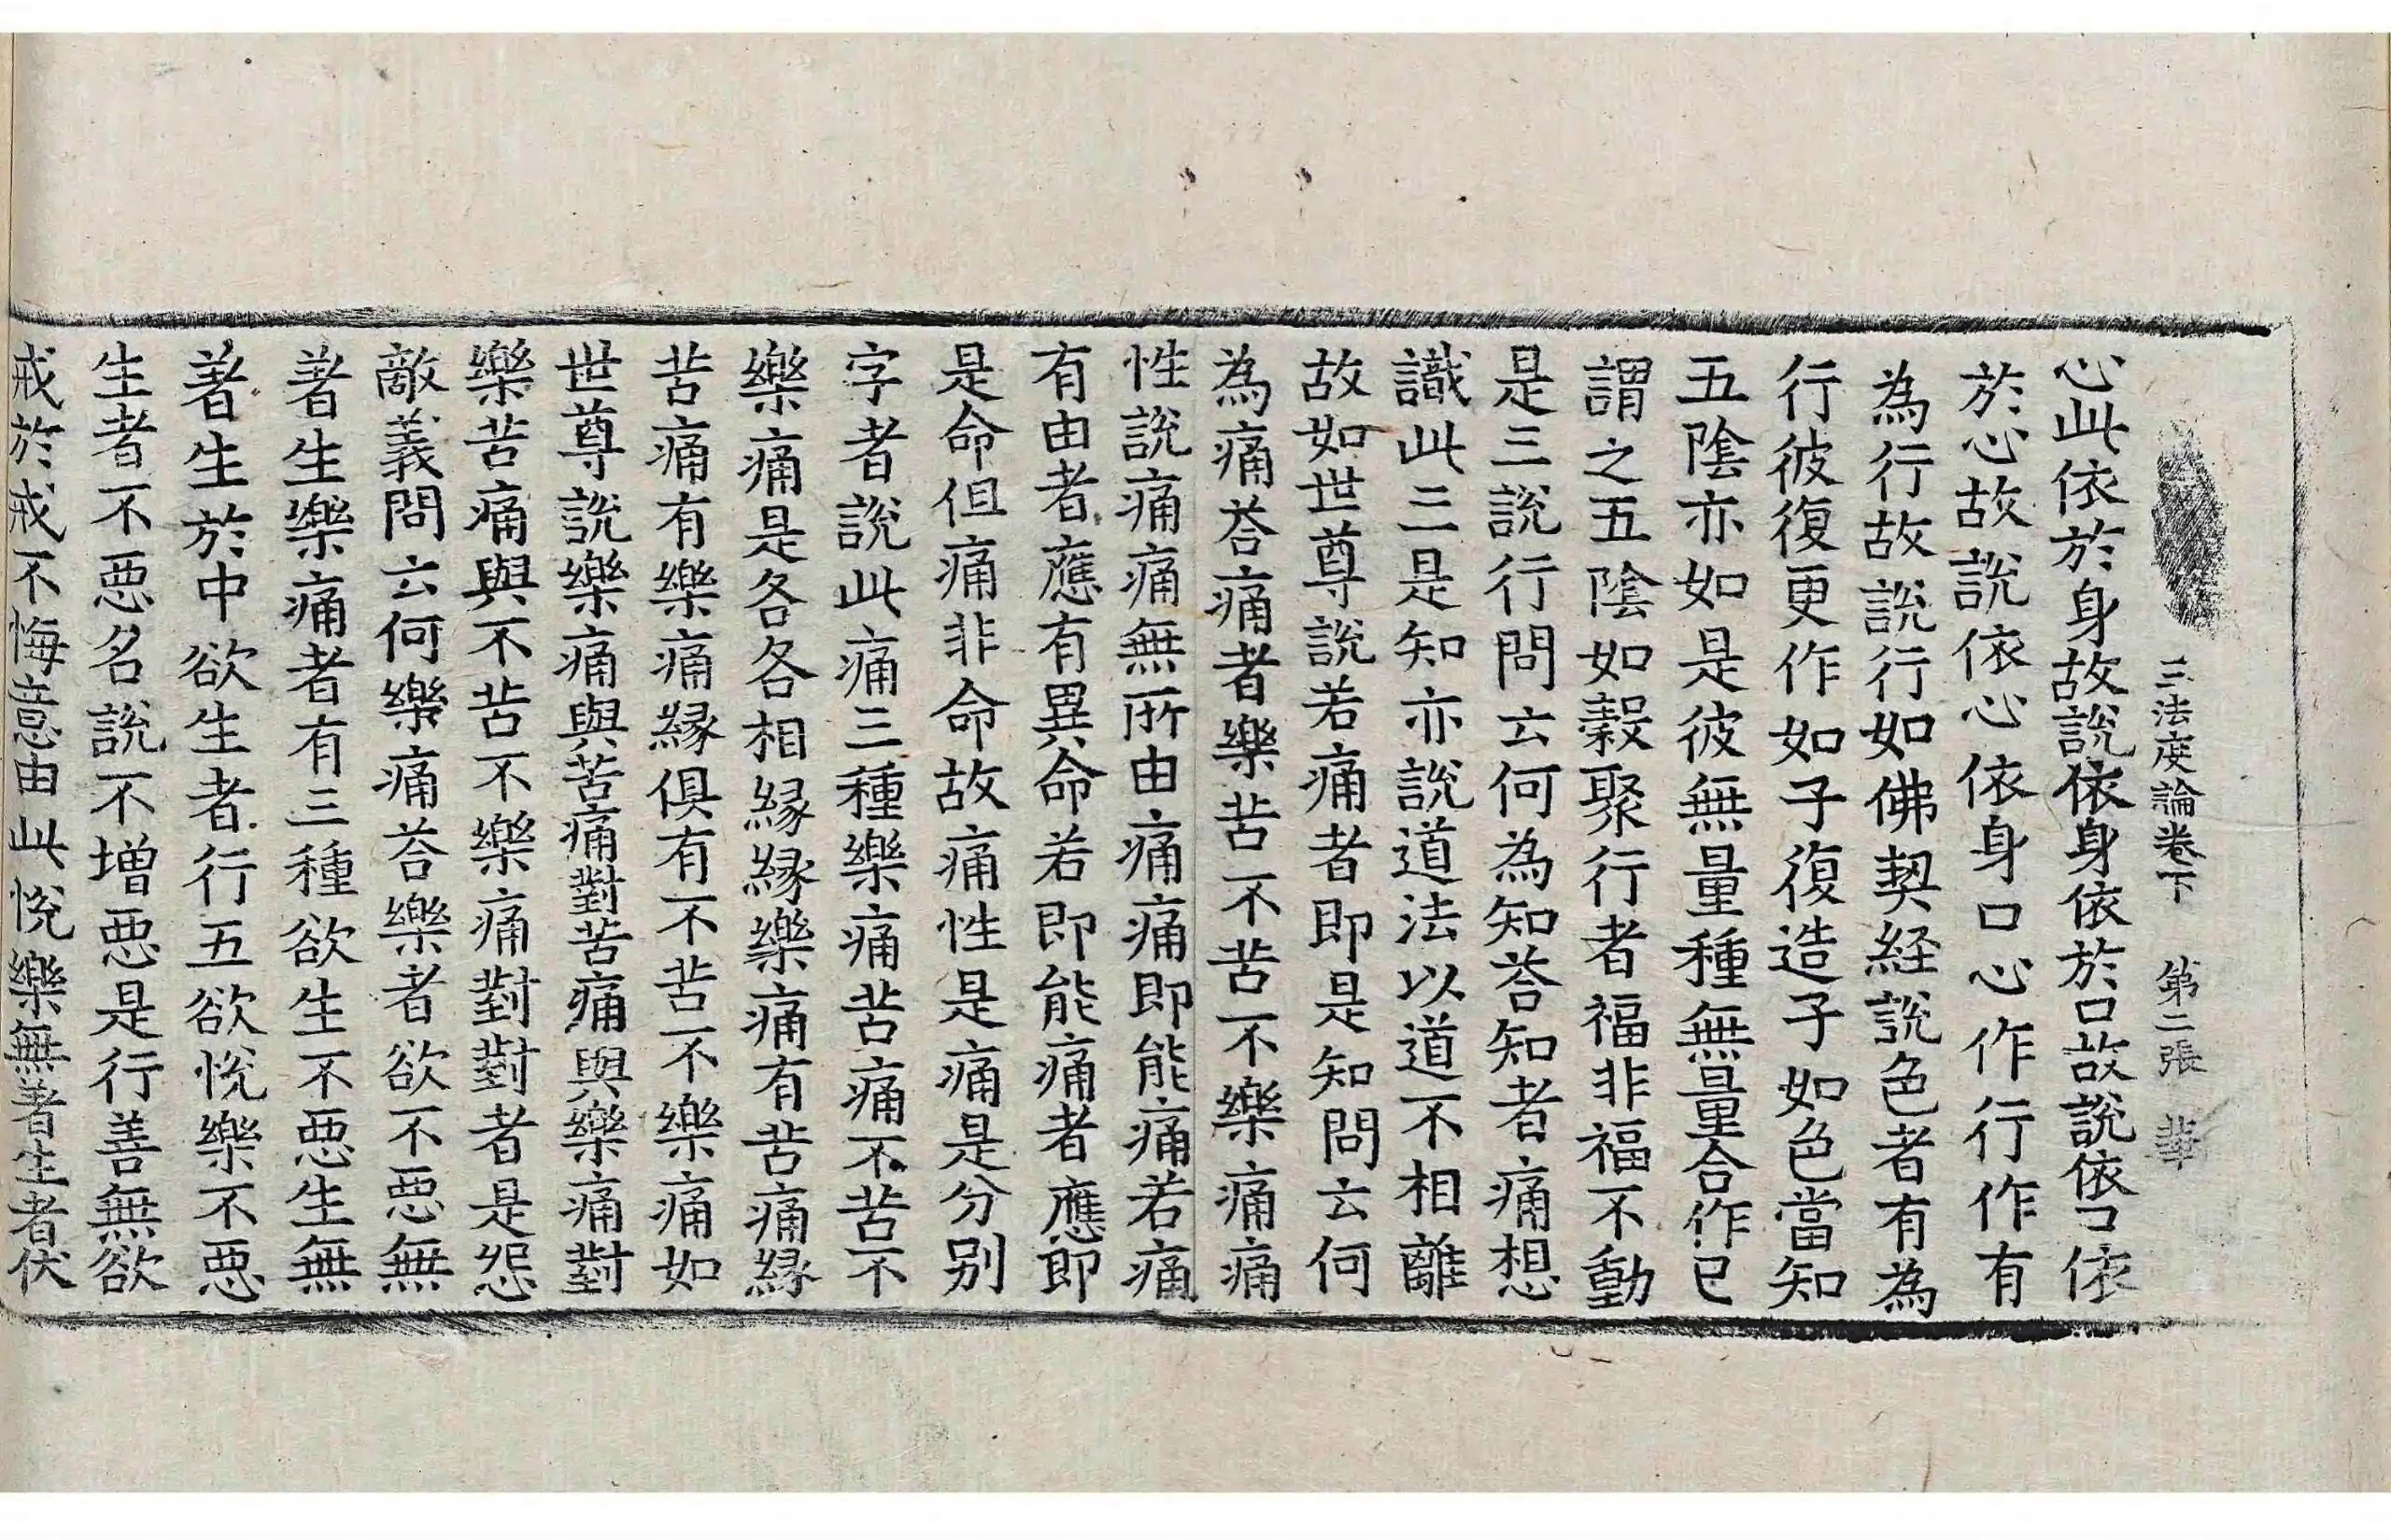 三法度論卷下 第二張 華
心此依於身故說依身依於口故說依口依
於心故說依心依身口心作行作有
為行故說行如佛契経說色者有為
行彼復更作如子復造子如色當知
五陰亦如是彼無量種無量合作已
謂之五陰如穀聚行者福非福不動
是三說行問云何為知荅知者痛想
識此三是知亦說道法以道不相離
故如世尊說若痛者即是知問云何
為痛荅痛者樂苦不苦不樂痛痛
性說痛痛無所由痛痛即能痛若痛
有由者應有異命若即能痛者應即
是命但痛非命故痛性是痛是分別
字者說此痛三種樂痛苦痛不苦不
樂痛是各各相縁縁樂痛有苦痛縁
苦痛有樂痛縁俱有不苦不樂痛如
世尊說樂痛與苦痛對苦痛與樂痛對
樂苦痛與不苦不樂痛對對者是怨
敵義問云何樂痛荅樂者欲不惡無
著生樂痛者有三種欲生不惡生無
著生於中欲生者行五欲悅樂不惡
生者不惡名說不增惡是行善無欲
戒於戒不悔意由此悅樂無著生者伏